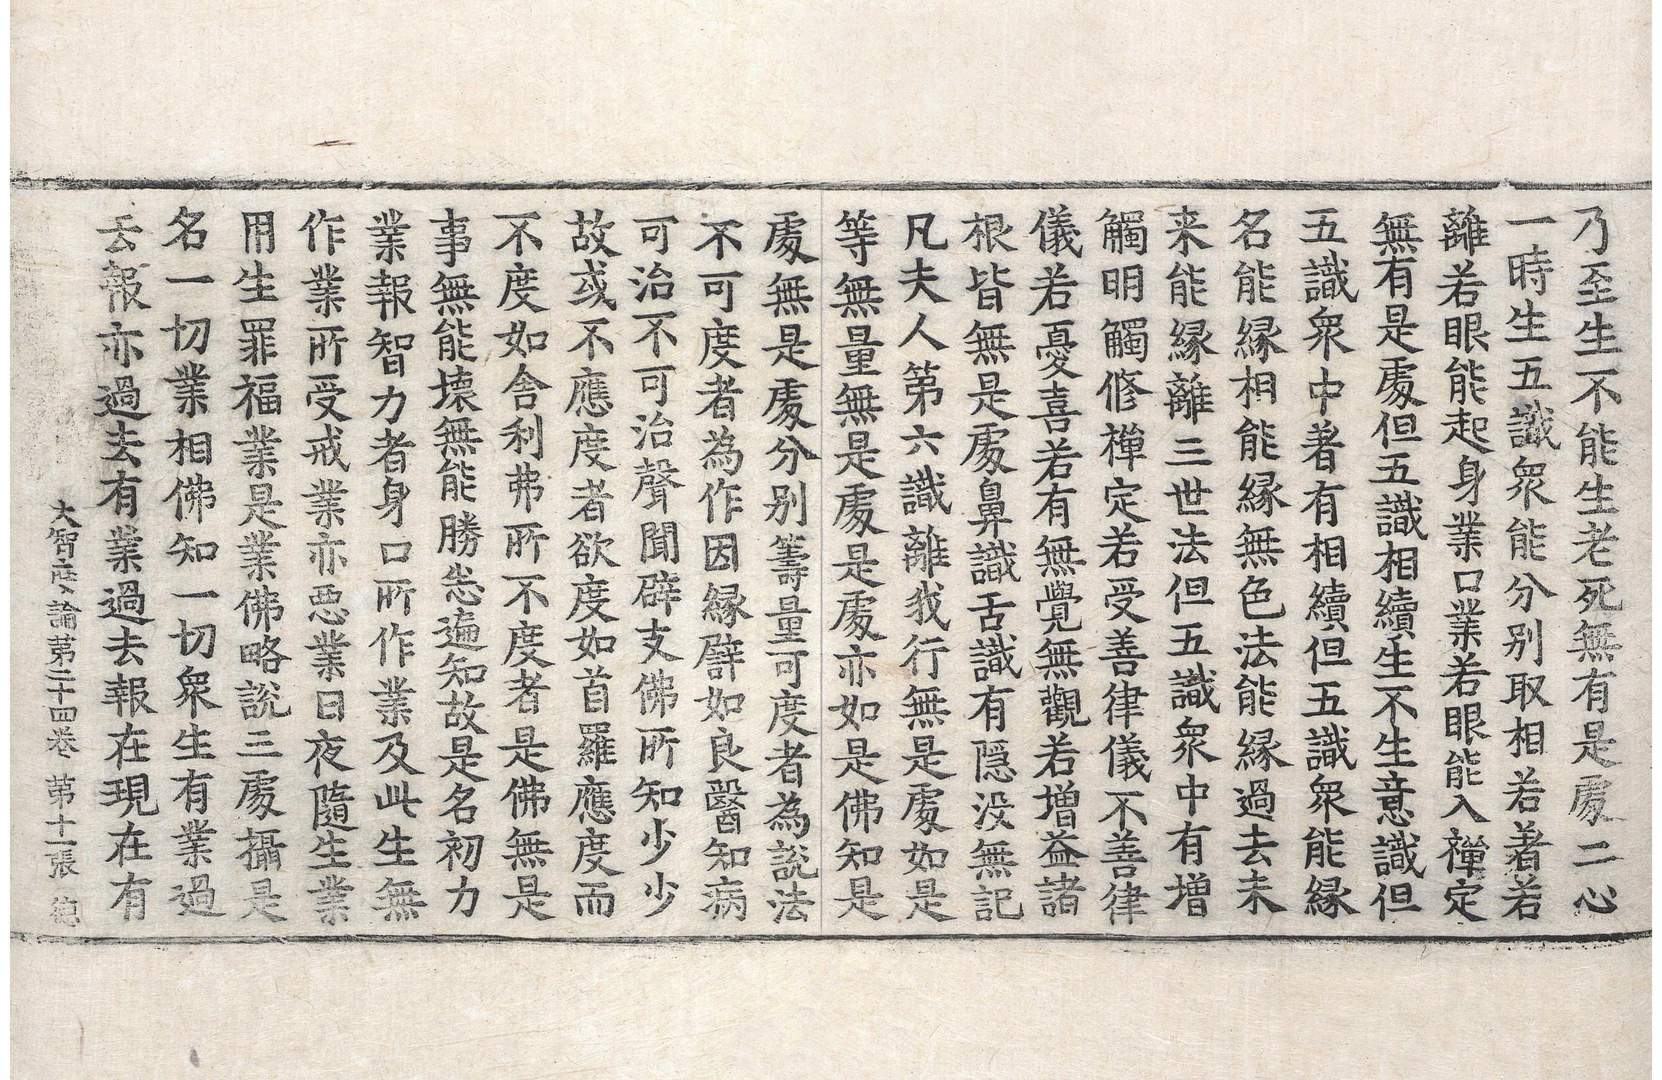 乃至生不能生老死無有是處二心
一時生五識衆能分别取相若著若
離若眼能起身業口業若眼能入禪定
無有是處但五識相續生不生意識但
五識衆中著有相續但五識衆能縁
名能縁相能縁無色法能縁過去未
来能縁離三世法但五識衆中有增
觸明觸修禪定若受善律儀不善律
儀若憂喜若有無覺無觀若增益諸
根皆無是處鼻識舌識有隱没無記
凡夫人第六識離我行無是處如是
等無量無是處是處亦如是佛知是
處無是處分别籌量可度者為說法
不可度者為作因縁譬如良醫知病
可治不可治聲聞辟支佛所知少少
故或不應度者欲度如首羅應度而
不度如舍利弗所不度者是佛無是
事無能壞無能勝悉遍知故是名初力
業報智力者身口所作業及此生無
作業所受戒業亦惡業日夜隨生業
用生罪福業是業佛略說三處攝是
名一切業相佛知一切衆生有業過
去報亦過去有業過去報在現在有
大智度論第二十四卷 第十一張